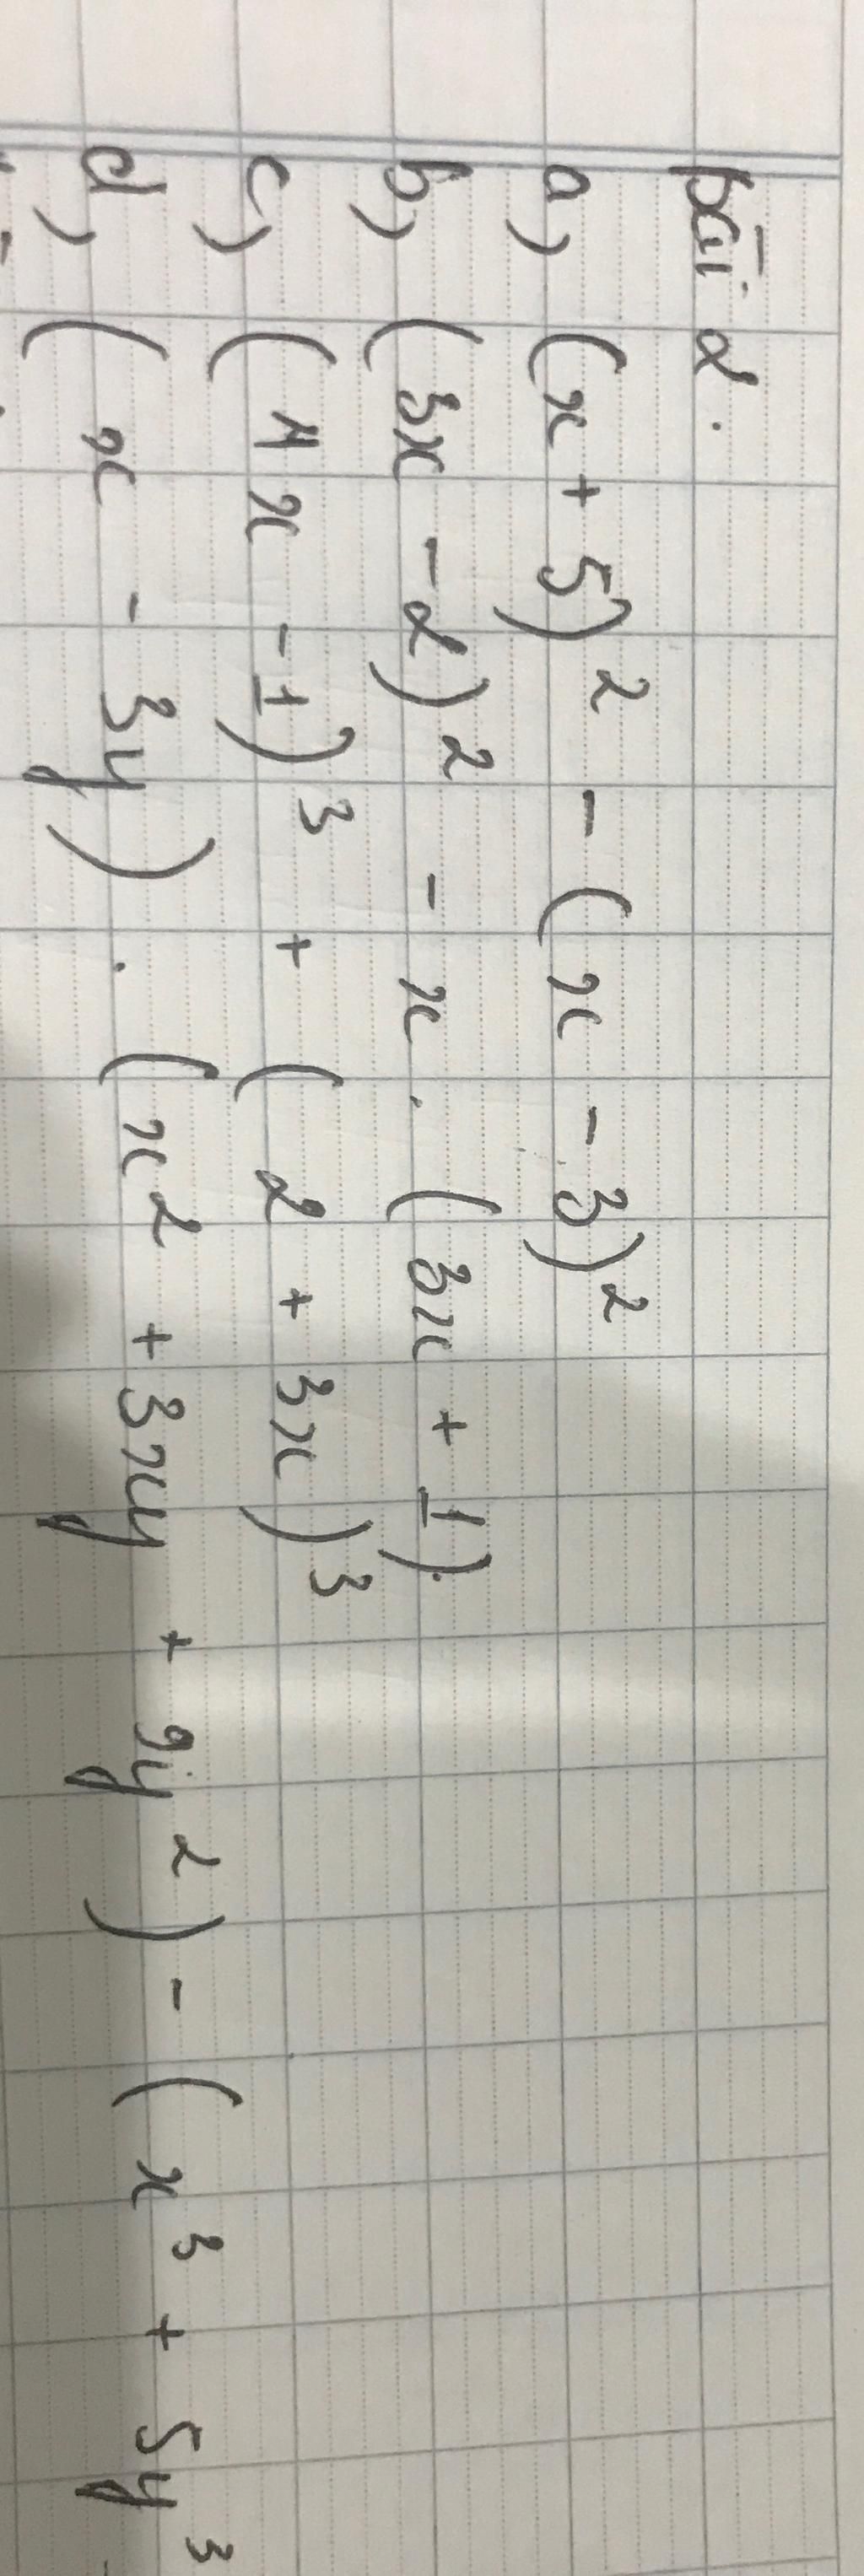 bài 2.
a) (x + 5)² - (x - 3)²
b) (3x - 2)² - x . (3x + 1).
c) (4x - 1)³ + (2 + 3x)³
d) (x - 3y) . (x² + 3xy + 9y²) - (x³ + 5y³